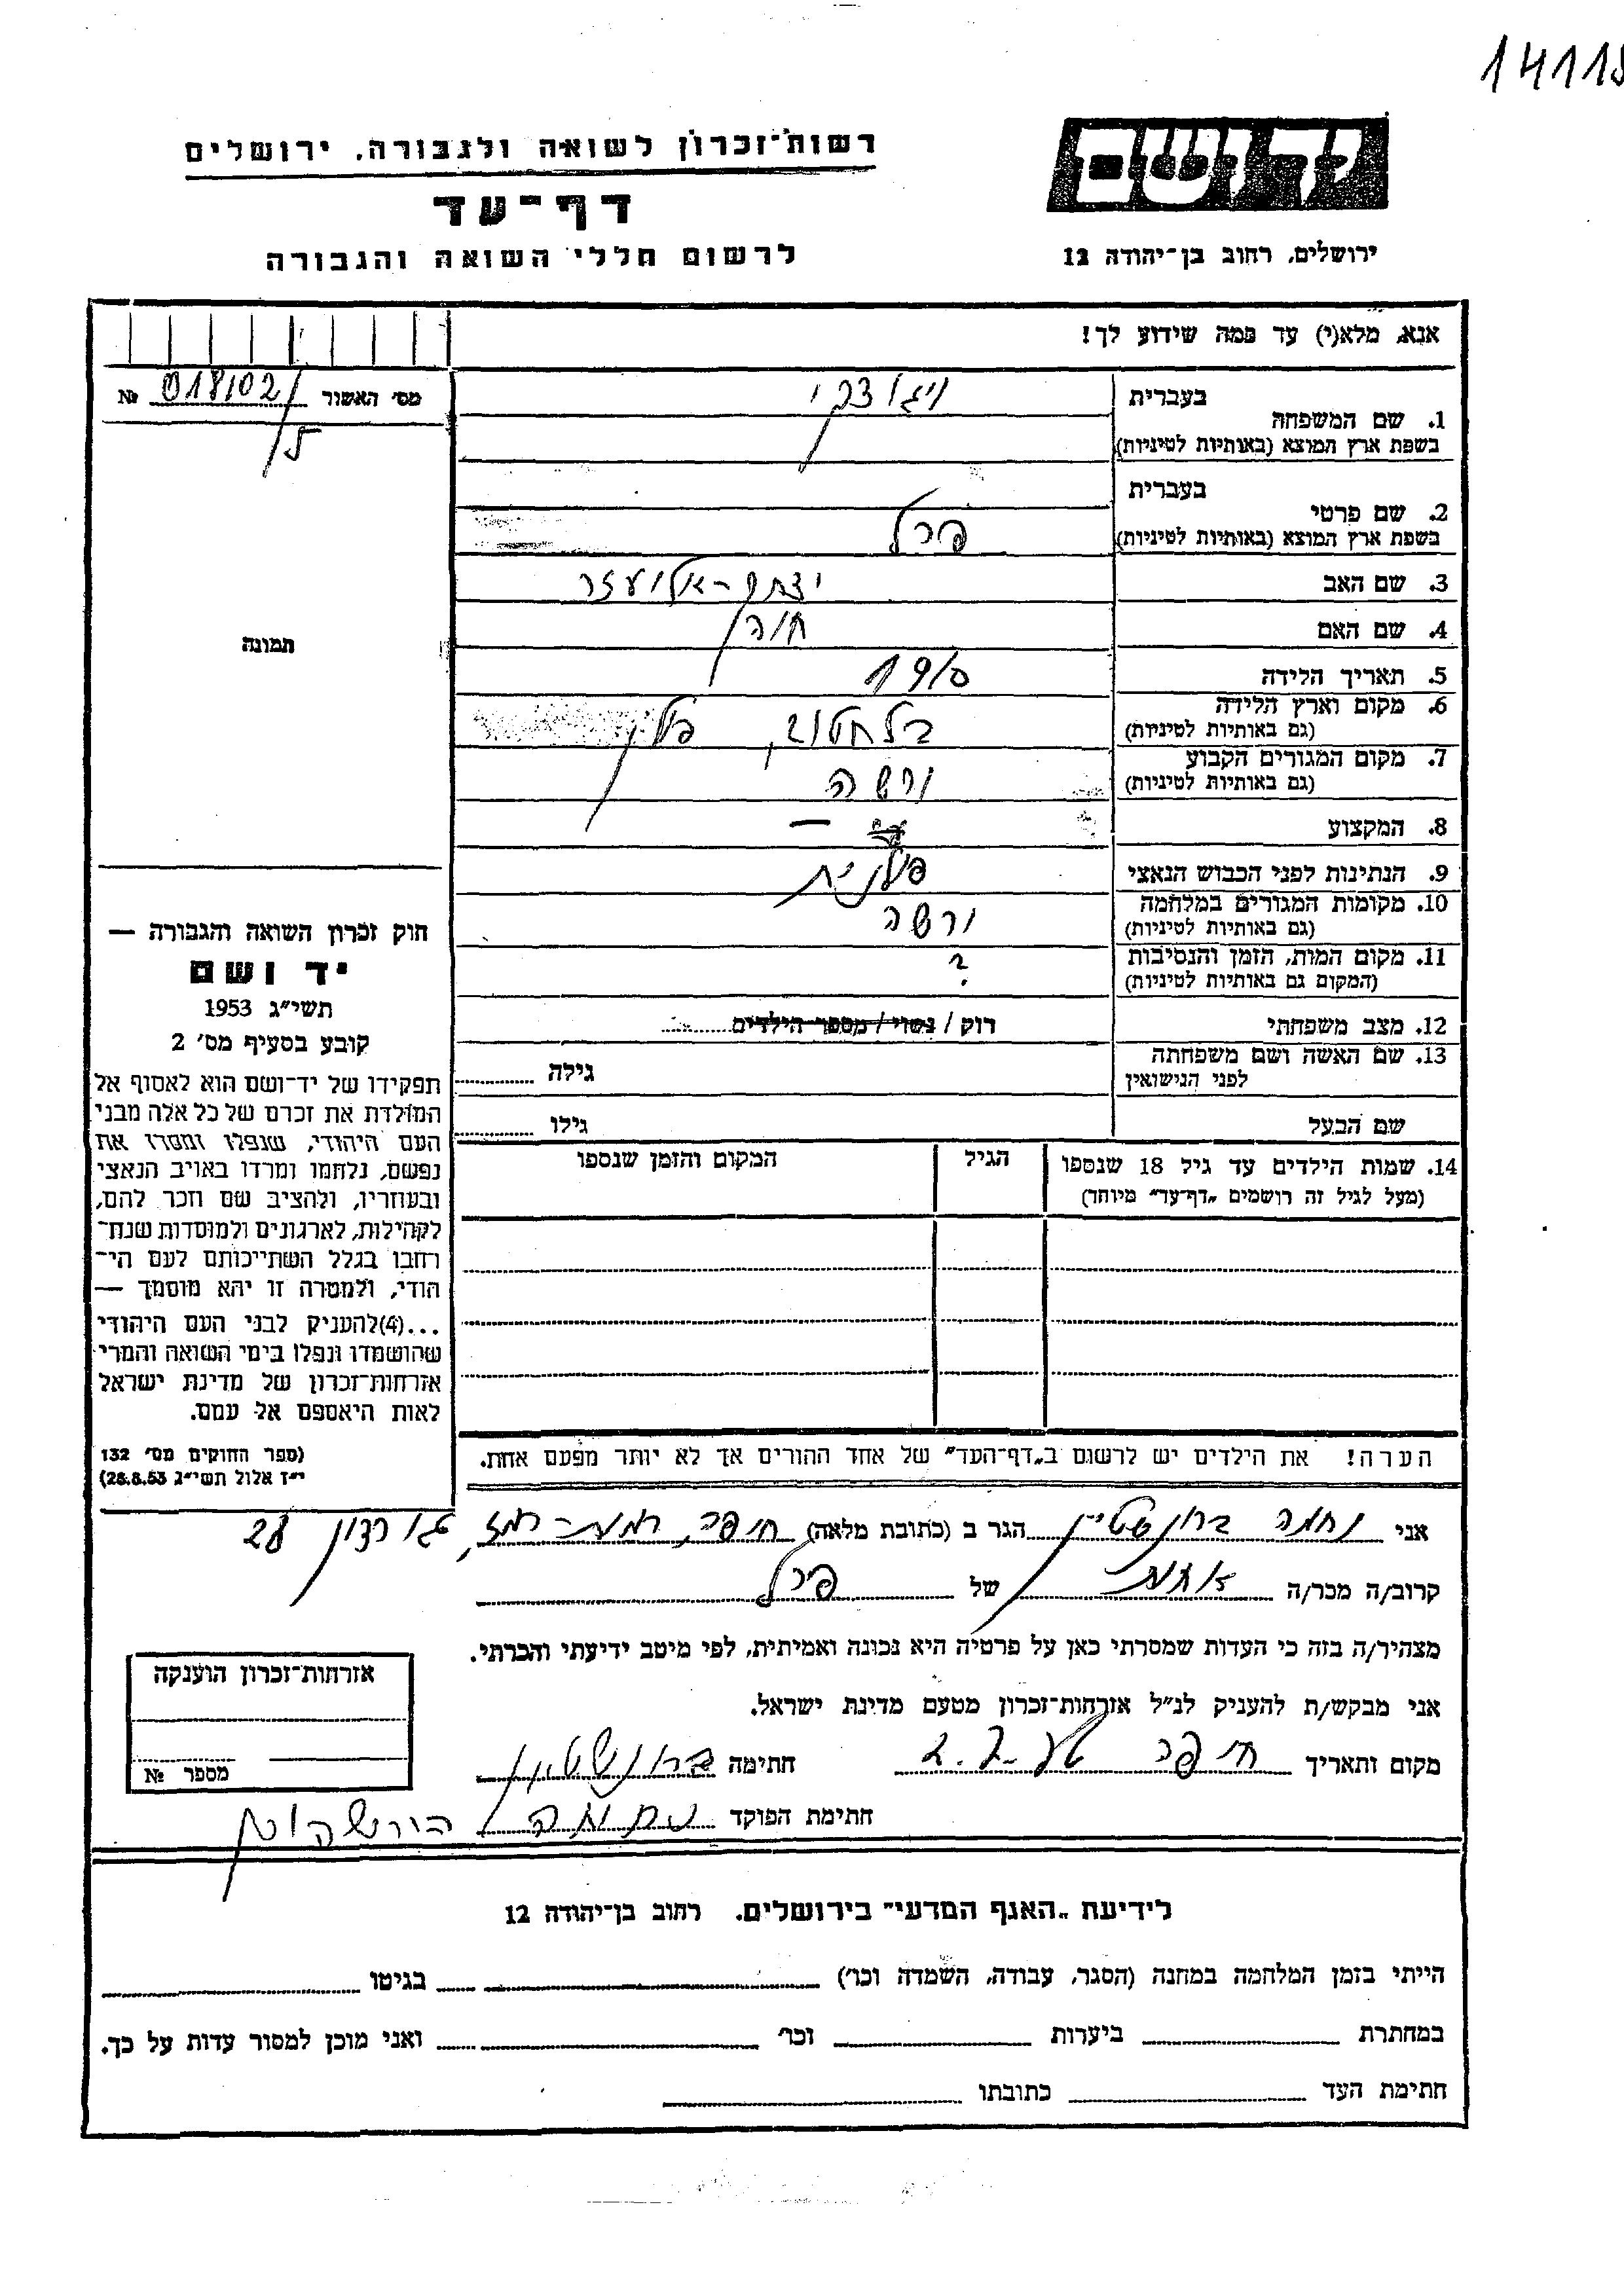 14115
רשות־זכרון לשואה ולגבורה, ירושלים
יד ושם
דף־עד
לרשום חללי השואה והגבורה
ירושלים, רחוב בן־יהודה 12
אנא, מלא(י) עד כמה שידוע לך!
מס׳ האשור 018102/5 №
בעברית ויגודצקי
1. שם המשפחה
בשפת ארץ המוצא (באותיות לטיניות)
בעברית
2. שם פרטי
בשפת ארץ המוצא (באותיות לטיניות) פרל
3. שם האב יצחק-אליעזר
4. שם האם חוה
תמונה
5. תאריך הלידה 1910
6. מקום וארץ הלידה
(גם באותיות לטיניות) בלחטוב, פולין
7. מקום המגורים הקבוע
(גם באותיות לטיניות) ורשה
8. המקצוע —
9. הנתינות לפני הכבוש הנאצי פולנית
10. מקומות המגורים במלחמה
(גם באותיות לטיניות) ורשה
11. מקום המות, הזמן והנסיבות
(המקום גם באותיות לטיניות) ?
12. מצב משפחתי רוק / נשוי / מספר הילדים
13. שם האשה ושם משפחתה
לפני הנישואין גילה
שם הבעל גילו
14. שמות הילדים עד גיל 18 שנספו הגיל המקום והזמן שנספו
(מעל לגיל זה רושמים „דף־עד״ מיוחד)
חוק זכרון השואה והגבורה —
יד ושם
תשי״ג 1953
קובע בסעיף מס׳ 2
תפקידו של יד־ושם הוא לאסוף אל
המולדת את זכרם של כל אלה מבני
העם היהודי, שנפלו ומסרו את
נפשם, נלחמו ומרדו באויב הנאצי
ובעוזריו, ולהציב שם וזכר להם,
לקהילות, לארגונים ולמוסדות שנח־
רבו בגלל השתייכותם לעם הי־
הודי, ולמטרה זו יהא מוסמך —
...(4)להעניק לבני העם היהודי
שהושמדו ונפלו בימי השואה והמרי
אזרחות־זכרון של מדינת ישראל
לאות היאספם אל עמם.
(ספר החוקים מס׳ 132
י״ז אלול תשי״ג 28.8.53)
הערה! את הילדים יש לרשום ב„דף־העד״ של אחד ההורים אך לא יותר מפעם אחת.
אני נחמה ברונשטיין הגר ב (כתובת מלאה) חיפה, רמת-רמז, גורדון 28
קרוב/ה מכר/ה אחות של פרל
מצהיר/ה בזה כי העדות שמסרתי כאן על פרטיה היא נכונה ואמיתית, לפי מיטב ידיעתי והכרתי.
אני מבקש/ת להעניק לנ״ל אזרחות־זכרון מטעם מדינת ישראל.
מקום ותאריך חיפה חתימה ברונשטיין
חתימת הפוקד
אזרחות־זכרון הוענקה
מספר №
לידיעת „האגף המדעי״ בירושלים. רחוב בן־יהודה 12
הייתי בזמן המלחמה במחנה (הסגר, עבודה, השמדה וכו׳) בגיטו
במחתרת ביערות וכו׳ ואני מוכן למסור עדות על כך.
חתימת העד כתובתו